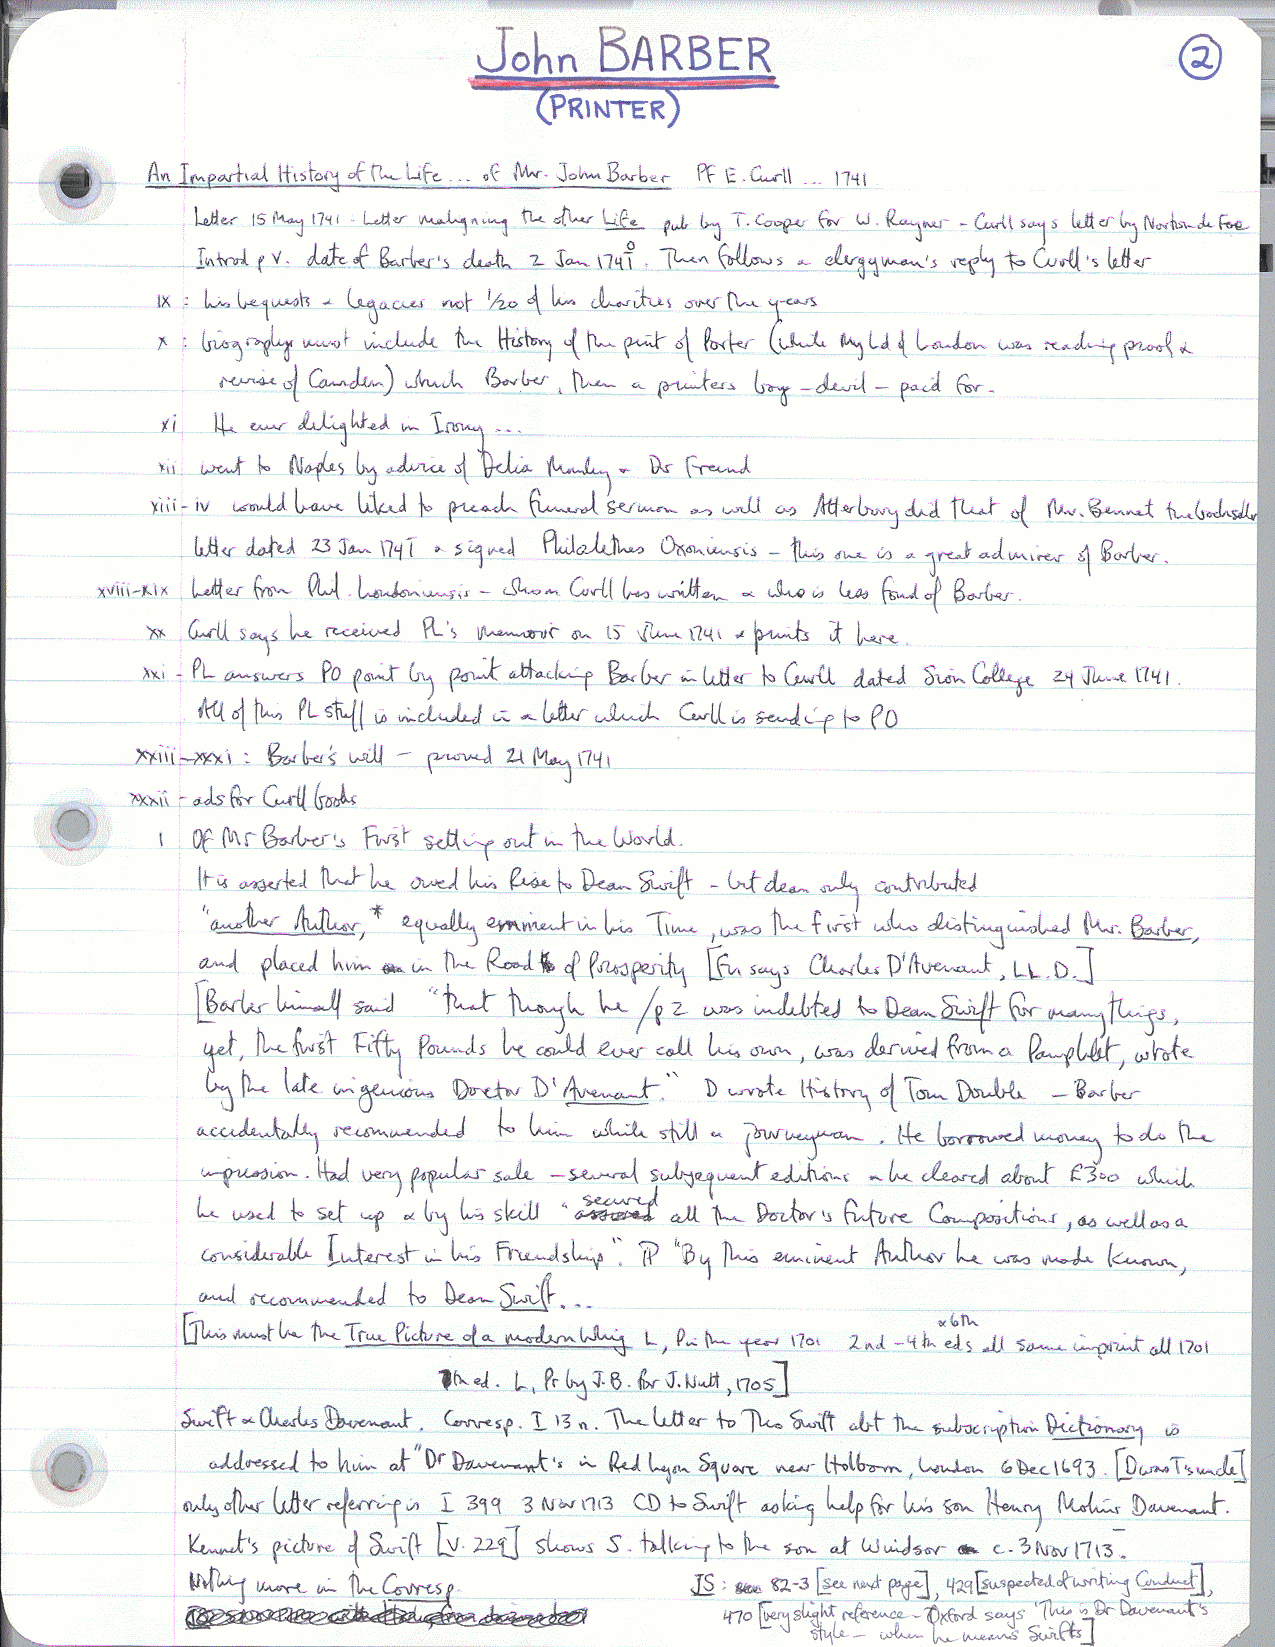 John BARBER
2
(PRINTER)
An Impartial History of the Life... of Mr. John Barber PF E. Curll ... 1741
Letter 15 May 1741 - Letter maligning the other Life pub by T. Cooper for W. Rayner - Curll says letter by Norton de Foe
Introd p v. date of Barber's death 2 Jan 174 0/1. Then follows a clergyman's reply to Curll's letter
ix : his bequests & legacies not 1/20 of his charities over the years
x : biography must include the History of the print of Porter (while My Ld of London was reading proof &
revise of Camden) which Barber, then a printers boy - devil - paid for.
xi He ever delighted in Irony...
xii went to Naples by advice of Delia Manley & Dr Freind
xiii-iv would have liked to preach funeral sermon as well as Atterbury did that of Mr. Bennet the bookseller
letter dated 23 Jan 1741 & signed Philalethes Oxoniensis - this one is a great admirer of Barber.
xviii-xix Letter from Phil. Londoniensis - whom Curll has written & who is less fond of Barber.
xx Curll says he received PL's memoir on 15 June 1741 & prints it here.
xxi - PL answers PO point by point attacking Barber in letter to Curll dated Sion College 24 June 1741.
All of this PL stuff is included in a letter which Curll is sending to PO
xxiii-xxxi : Barber's will - proved 21 May 1741
xxxii - ads for Curll books
1 Of Mr Barber's First setting out in the World.
It is asserted that he owed his Rise to Dean Swift - but dean only contributed
"another Author,* equally eminent in his Time, was the first who distinguished Mr. Barber,
and placed him in the Road of Prosperity [Fn says Charles D'Avenant, LL.D.]
[Barber himself said "that though he /p 2 was indebted to Dean Swift for many things,
yet, the first Fifty Pounds he could ever call his own, was derived from a Pamphlet, wrote
by the late ingenious Doctor D'Avenant." D wrote History of Tom Double - Barber
accidentally recommended to him while still a journeyman. He borrowed money to do the
impression. Had very popular sale - several subsequent editions & he cleared about £300 which
he used to set up & by his skill "secured all the Doctor's future Compositions, as well as a
considerable Interest in his Friendship". ¶ "By this eminent Author he was made Known,
and recommended to Dean Swift...
[This must be the True Picture of a modern Whig L, P in the year 1701 2nd - 4th & 6th eds all same imprint all 1701
7th ed. L, Pr by J.B. for J. Nutt, 1705]
Swift & Charles Davenant. Corresp. I 13 n. The letter to Tho Swift abt the subscription Dictionary is
addressed to him at "Dr Davenant's in Red Lyon Square near Holborn, London 6 Dec 1693. [D was T's uncle]
only other letter referring is I 399 3 Nov 1713 CD to Swift asking help for his son Henry Molins Davenant.
Kennet's picture of Swift [V. 229] shows S. talking to the son at Windsor c. 3 Nov 1713.
Nothing more in the Corresp.
JS : 82-3 [see next page], 429 [suspected of writing Conduct],
470 [very slight reference - Oxford says 'This is Dr Davenant's
style - when he means Swifts]